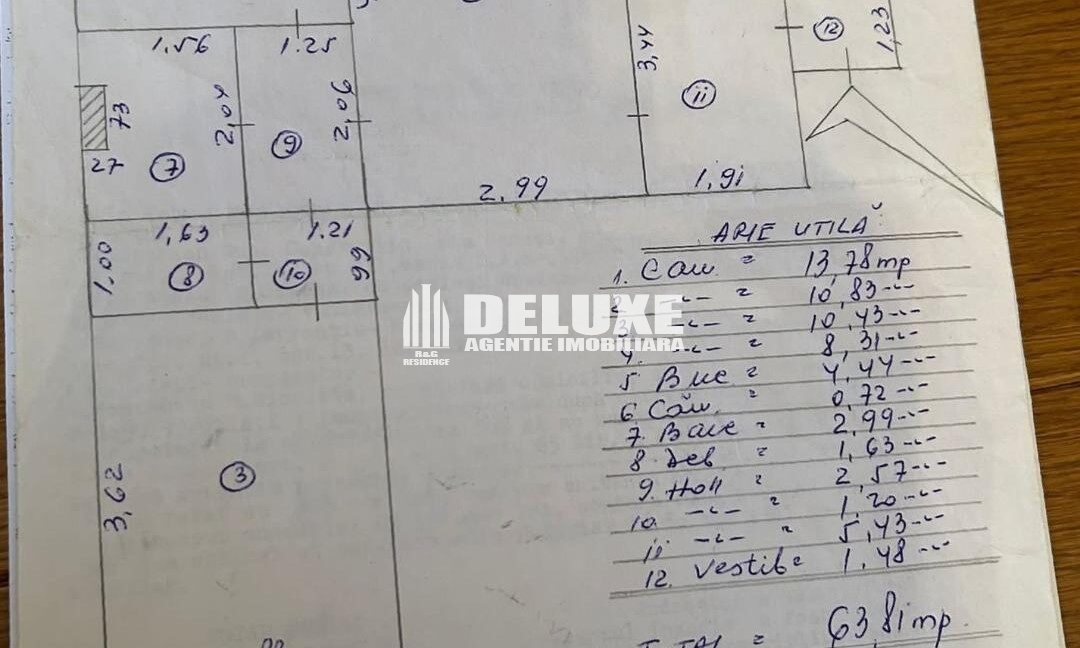 1,56
1.25
3,44
12
1,23
73
2,04
2,06
9
11
27
7
2,99
1,91
1,63
1.21
1,00
8
10
99
ARIE UTILĂ
1. Cam = 13,78mp
2 -"- = 10,83-"-
3 -"- = 10,43-"-
4. -"- = 8,31-"-
5 Buc = 4,44-"-
6 Căm. = 0,72-"-
7. Baie = 2,99-"-
8. Deb = 1,63-"-
9. Holl = 2,57-"-
10. -"- = 1,20-"-
11 -"- = 5,43-"-
12. Vestib = 1,48-"-
TOTAL = 63,81mp.
3,62
3
DELUXE
AGENTIE IMOBILIARA
R&G
RESIDENCE